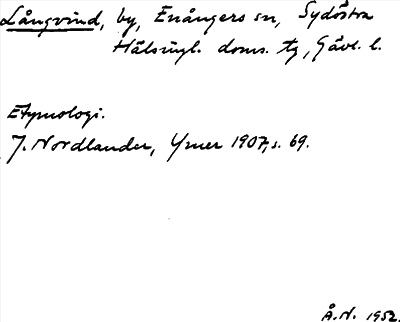 Långvind, by, Enångers sn, Sydöstra
Hälsingl. doms. tg, Gävl. l.
Etymologi.
J. Nordlander, Ymer 1907, s. 69.
Å.N. 1952.